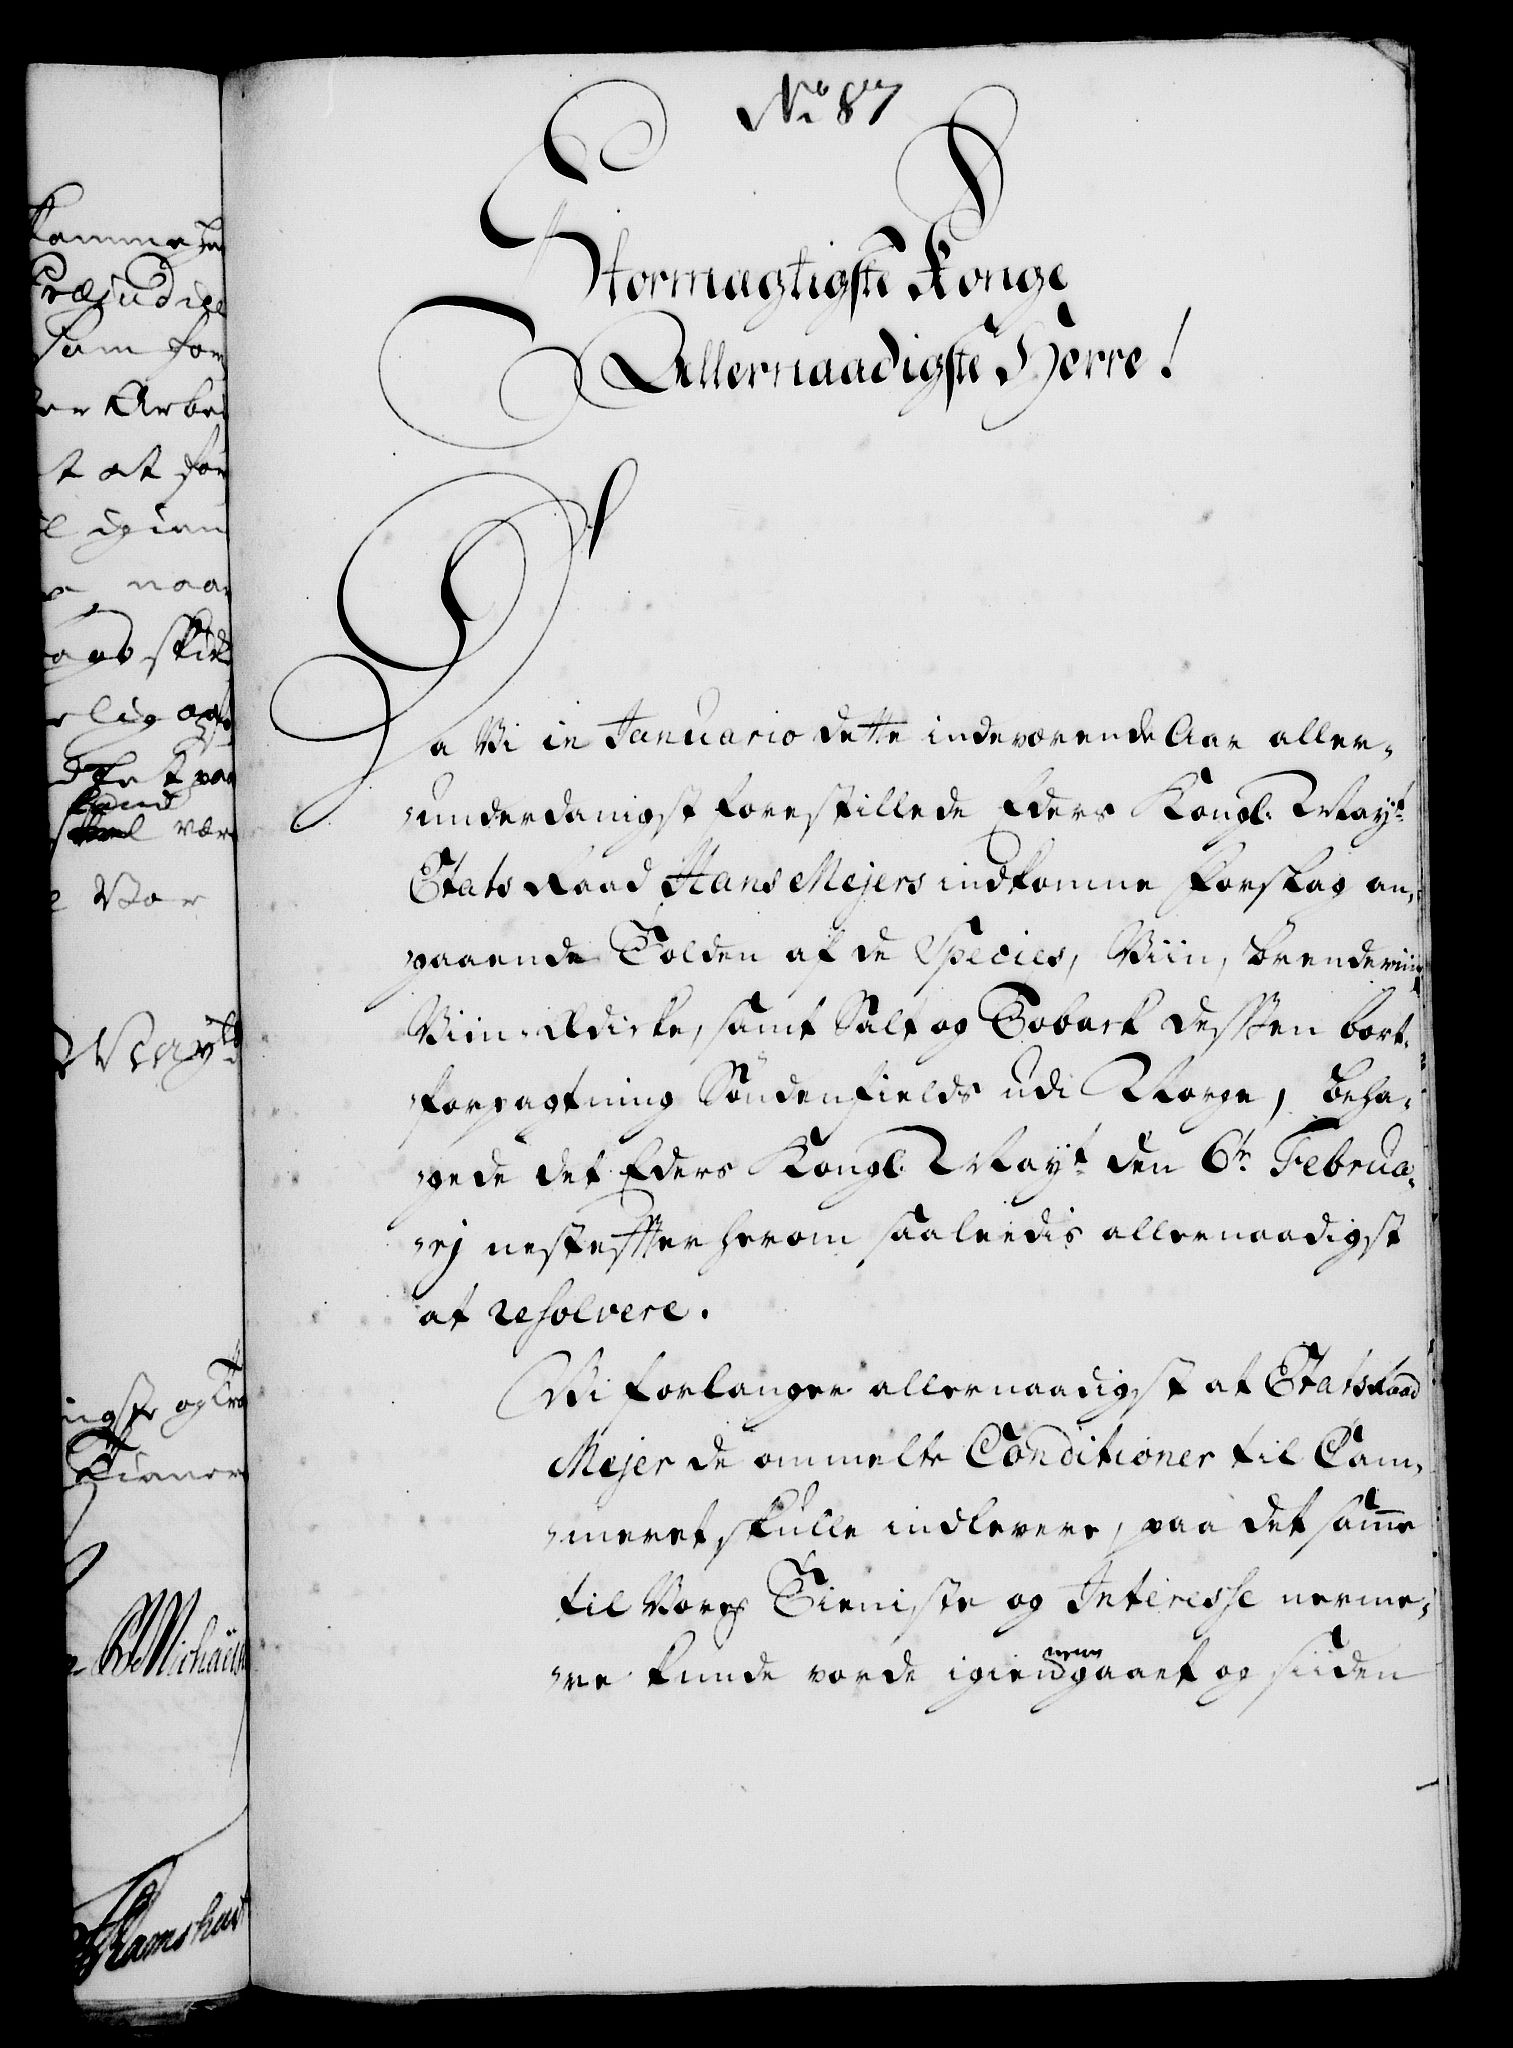 No 87
Stormægtigste Konge
Allernaadigste Herre!
Da Vi in Januario dette indeværende Aar aller-
underdanigst forestillede Eders Kongl. Mayt
Etats Raad Hans Mejers indkomne forslag an-
gaaende Tolden af de Species, Viin, Brendeviin
Viin-Ædicke, samt Salt og Toback dessen bort-
forpagtning Søndenfields udi Norge, beha-
gede det Eders Kongl. Mayt den 6te Februa-
rij nestefter herom saaleedis allernaadigst
at resolvere.
Vi forlanger allernaadigst at EtatsRaad
Mejer de ommelte Conditioner til Cam-
meret skulle indlevere, paa det samme
til Vores Tieniste og Interesse nerme-
re kunde vorde igiennem gaaet og siiden
Præjudice
som for
er Arbei
t at for
igien
naa
lig
paa
kund
vær
Vor
Mayts
ingste og
Ramshart